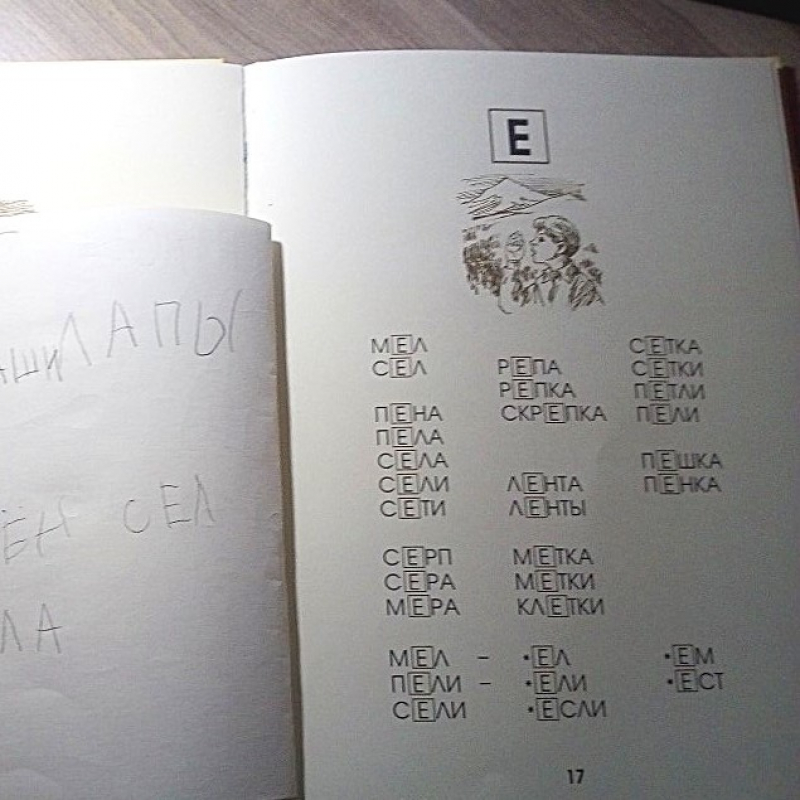 Е
МЕЛ СЕТКА
СЕЛ РЕПА СЕТКИ
РЕПКА ПЕТЛИ
ПЕНА СКРЕПКА ПЕЛИ
ПЕЛА
СЕЛА ПЕШКА
СЕЛИ ЛЕНТА ПЕНКА
СЕТИ ЛЕНТЫ
СЕРП МЕТКА
СЕРА МЕТКИ
МЕРА КЛЕТКИ
МЕЛ – •ЕЛ •ЕМ
ПЕЛИ – •ЕЛИ •ЕСТ
СЕЛИ •ЕСЛИ
17
ЛАПЫ
СЕЛ